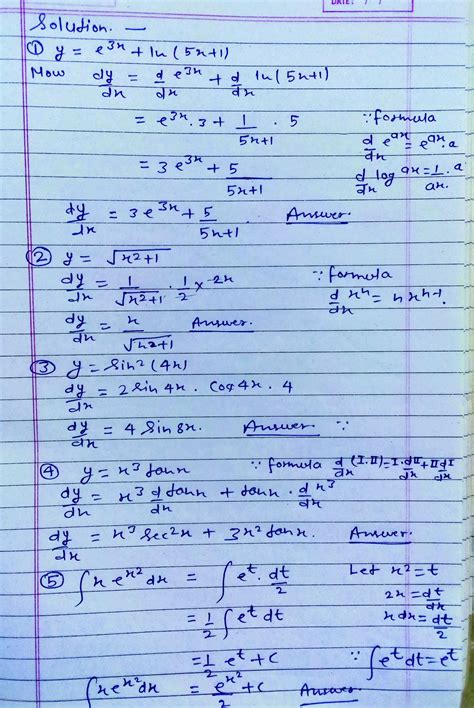 DATE: / /
Solution. —
① y = e^3x + ln (5x+1)
Now dy/dx = d/dx e^3x + d/dx ln (5x+1)
= e^3x . 3 + 1/(5x+1) . 5 ∵ formula
d/dx e^ax = e^ax . a
= 3 e^3x + 5/(5x+1) d/dx log ax = 1/ax . a
dy/dx = 3 e^3x + 5/(5x+1) . Answer.
② y = √(x²+1)
dy/dx = 1/√(x²+1) . 1/2 × 2x ∵ formula
d/dx x^n = n x^n-1.
dy/dx = x/√(x²+1) Answer.
③ y = Sin² (4x)
dy/dx = 2 Sin 4x . Cos 4x . 4
dy/dx = 4 Sin 8x. Answer ∵
④ y = x³ tanx ∵ formula d/dx (I.II) = I . dII/dx + II dI/dx
dy/dx = x³ d/dx tanx + tanx . d/dx x³
dy/dx = x³ sec²x + 3x² tanx. Answer.
⑤ ∫ x e^x² dx = ∫ e^t . dt/2 Let x² = t
2x = dt/dx
= 1/2 ∫ e^t dt x dx = dt/2
= 1/2 e^t + c ∵ ∫ e^t dt = e^t
∫ x e^x² dx = e^x²/2 + c Answer.